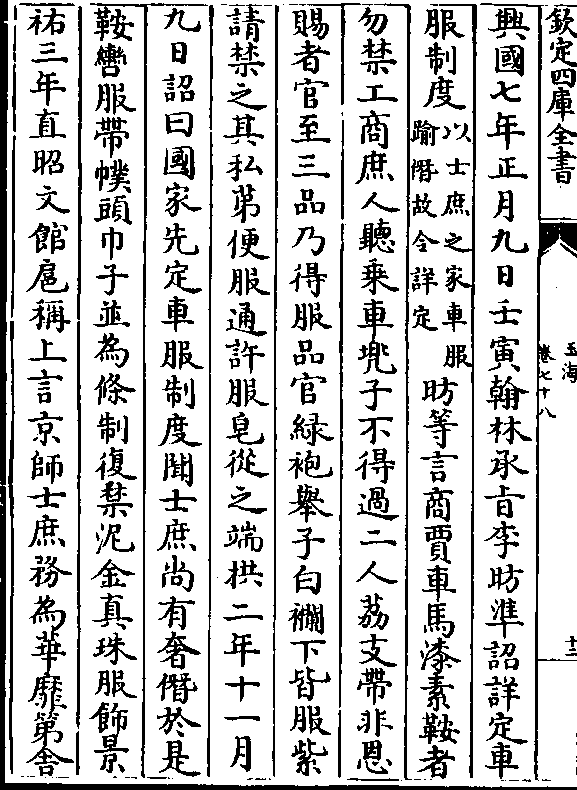 欽定四庫全書
玉海
卷七十八
十三
興國七年正月九日壬寅翰林承旨李昉準詔詳定車
服制度以士庶之家車服
踰僭故令詳定昉等言商賈車馬漆素鞍者
勿禁工商庶人聽乗車兠子不得過二人荔支帶非恩
賜者官至三品乃得服品官緑袍舉子白襴下皆服紫
請禁之其私第便服通許服皂從之端拱二年十一月
九日詔曰國家先定車服制度聞士庶尚有奢僭於是
鞍轡服帶幞頭巾子並為條制復禁泥金真珠服飾景
祐三年直昭文館扈稱上言京師士庶務為華靡第舍